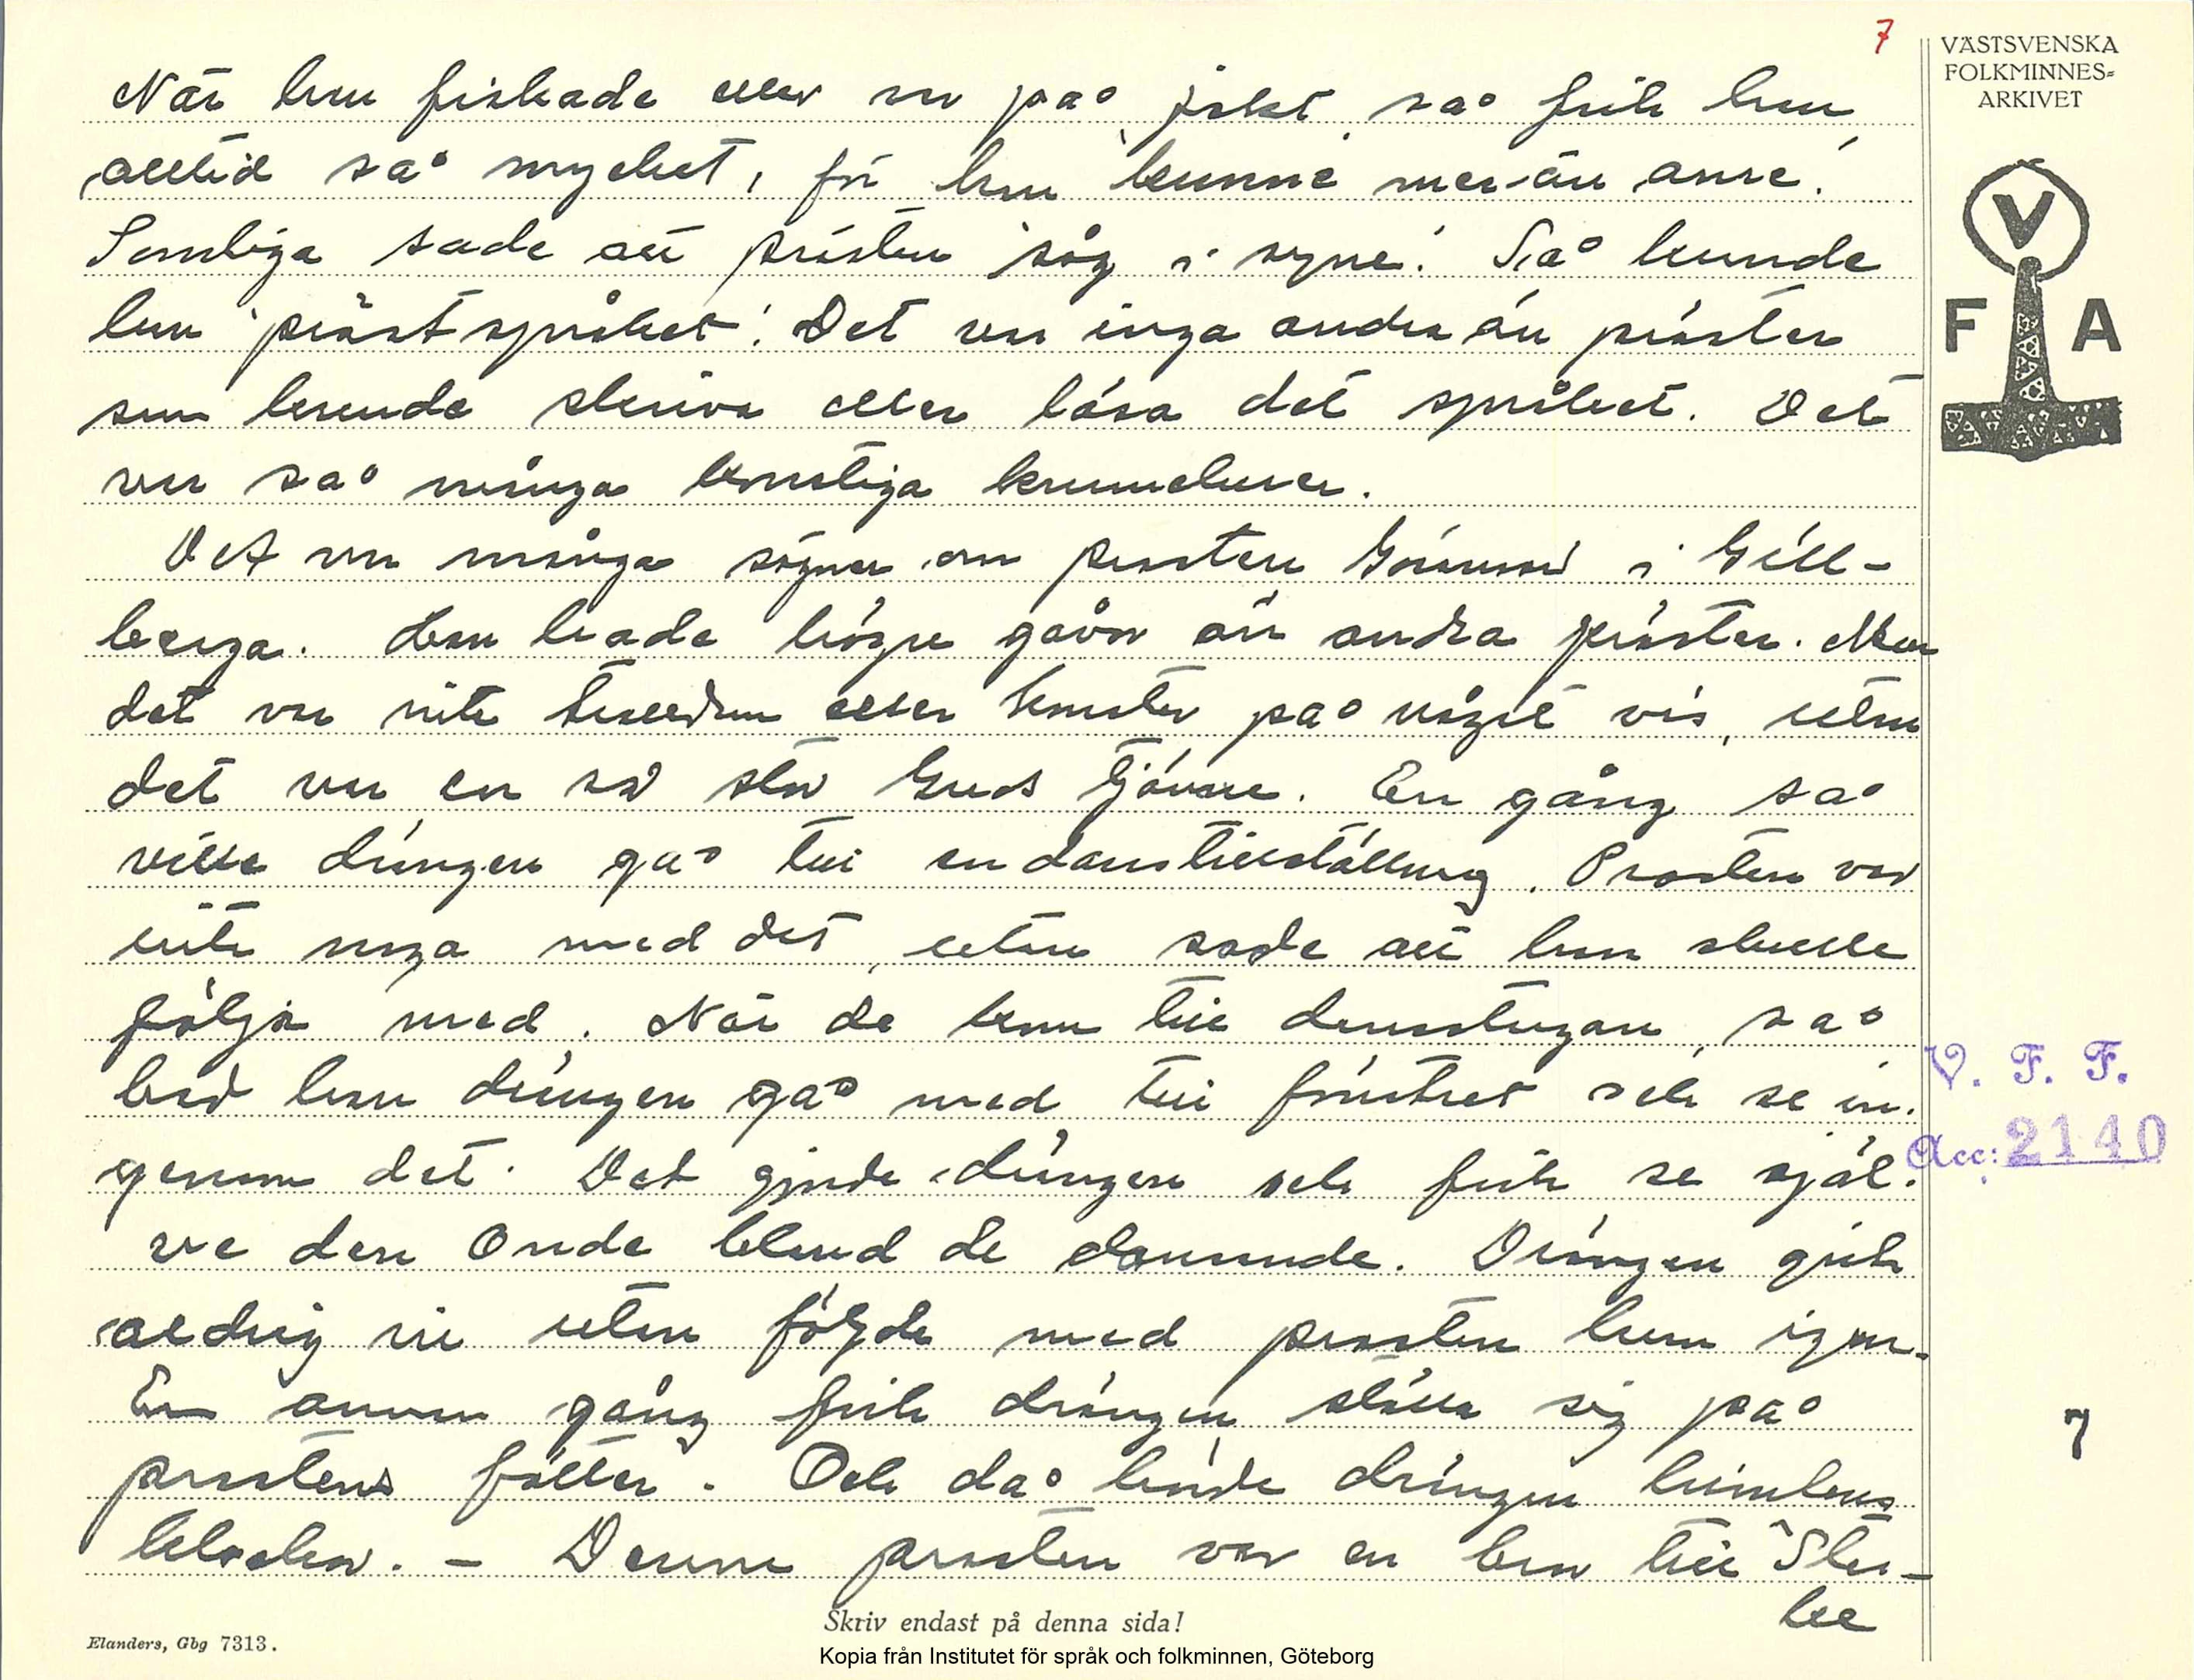 7
VÄSTSVENSKA
FOLKMINNES=
ARKIVET
När han fiskade eller var på jakt, så fick han
alltid så mycket, för han 'kunne mer än anre'.
Somliga sade att prästen 'såg i syne'. Så kunde
han 'prästspråket'. Det var inga andra än präster
som kunde skriva eller läsa det språket. Det
var så många konstiga krumelurer.
Det var många sägner om prosten i Gill-
berga. Han hade högre gåvor än andra präster. Men
det var inte trolldom eller konster på något vis, utan
det var en så stor Guds tjänare. En gång så
ville drängen gå till en danstillställning. Prosten var
inte noga med det, utan sade att han skulle
följa med. När de kom till dansstugan, så
bad han drängen gå med till fönstret och se in.
genom det. Det gjorde drängen och fick se själ.
ve den Onde bland de dansande. Drängen gick
aldrig in utan följde med prosten hem igen.
En annan gång fick drängen ställa sig på
prostens fötter. Och då hörde drängen himlens
klockor. – Denne prosten var en bror till
V F A
V. F. F.
Acc: 2140
7
Skriv endast på denna sida!
Elanders, Gbg 7313.
Kopia från Institutet för språk och folkminnen, Göteborg